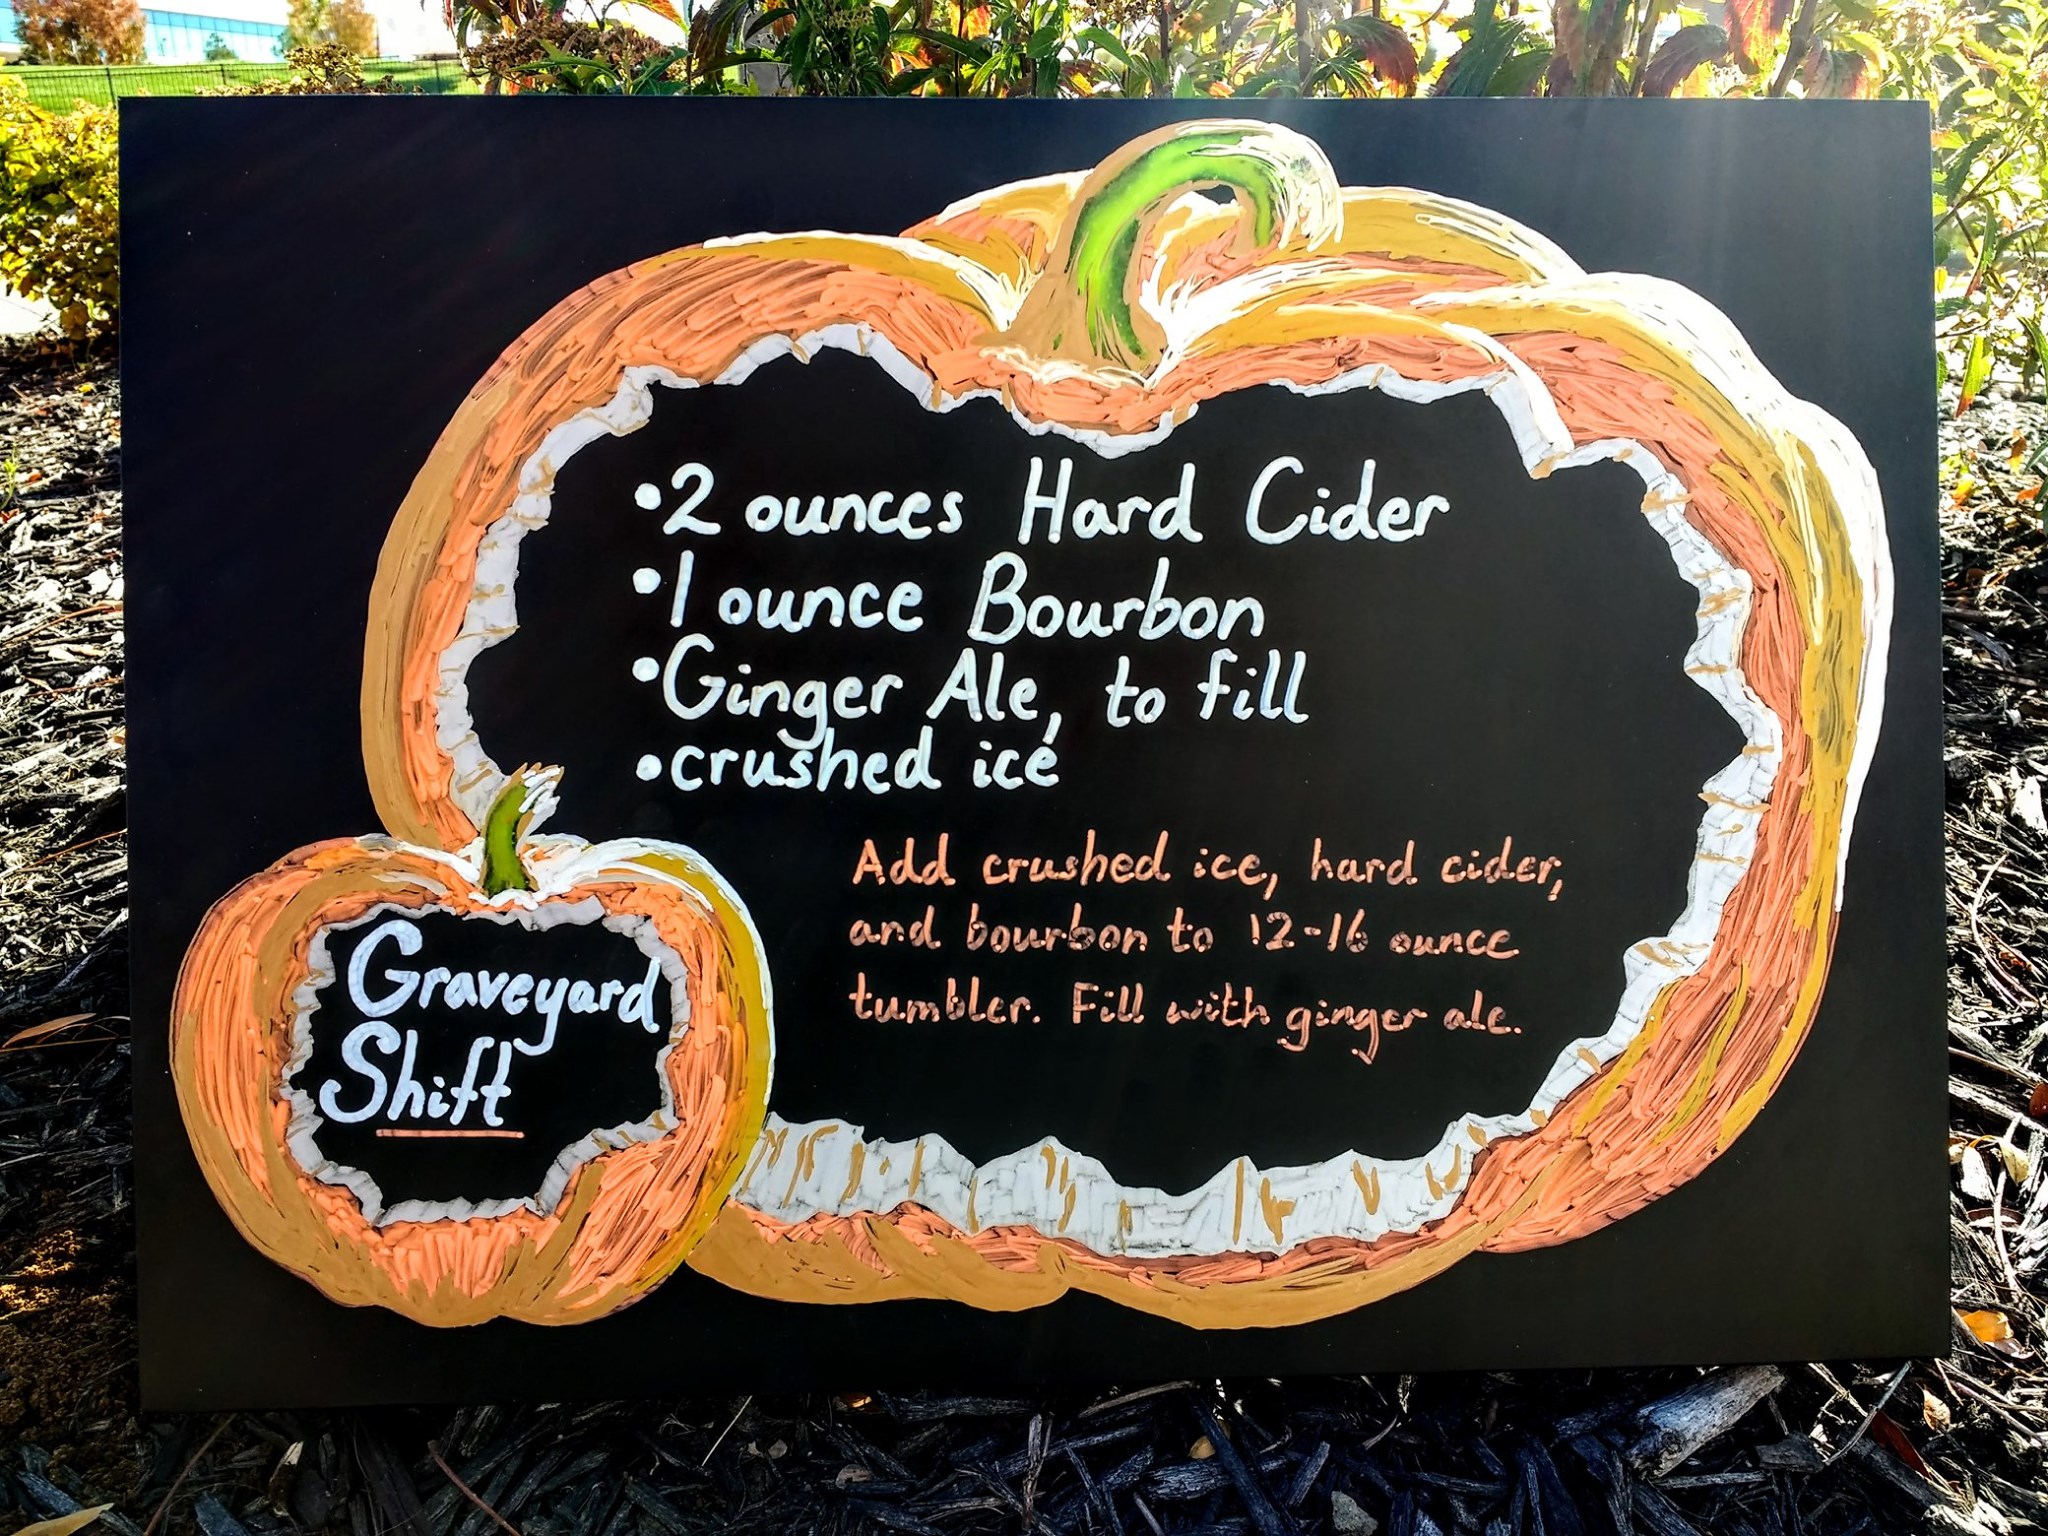 •2 ounces Hard Cider
•1 ounce Bourbon
•Ginger Ale, to fill
•crushed ice
Add crushed ice, hard cider,
and bourbon to 12-16 ounce
tumbler. Fill with ginger ale.
Graveyard
Shift